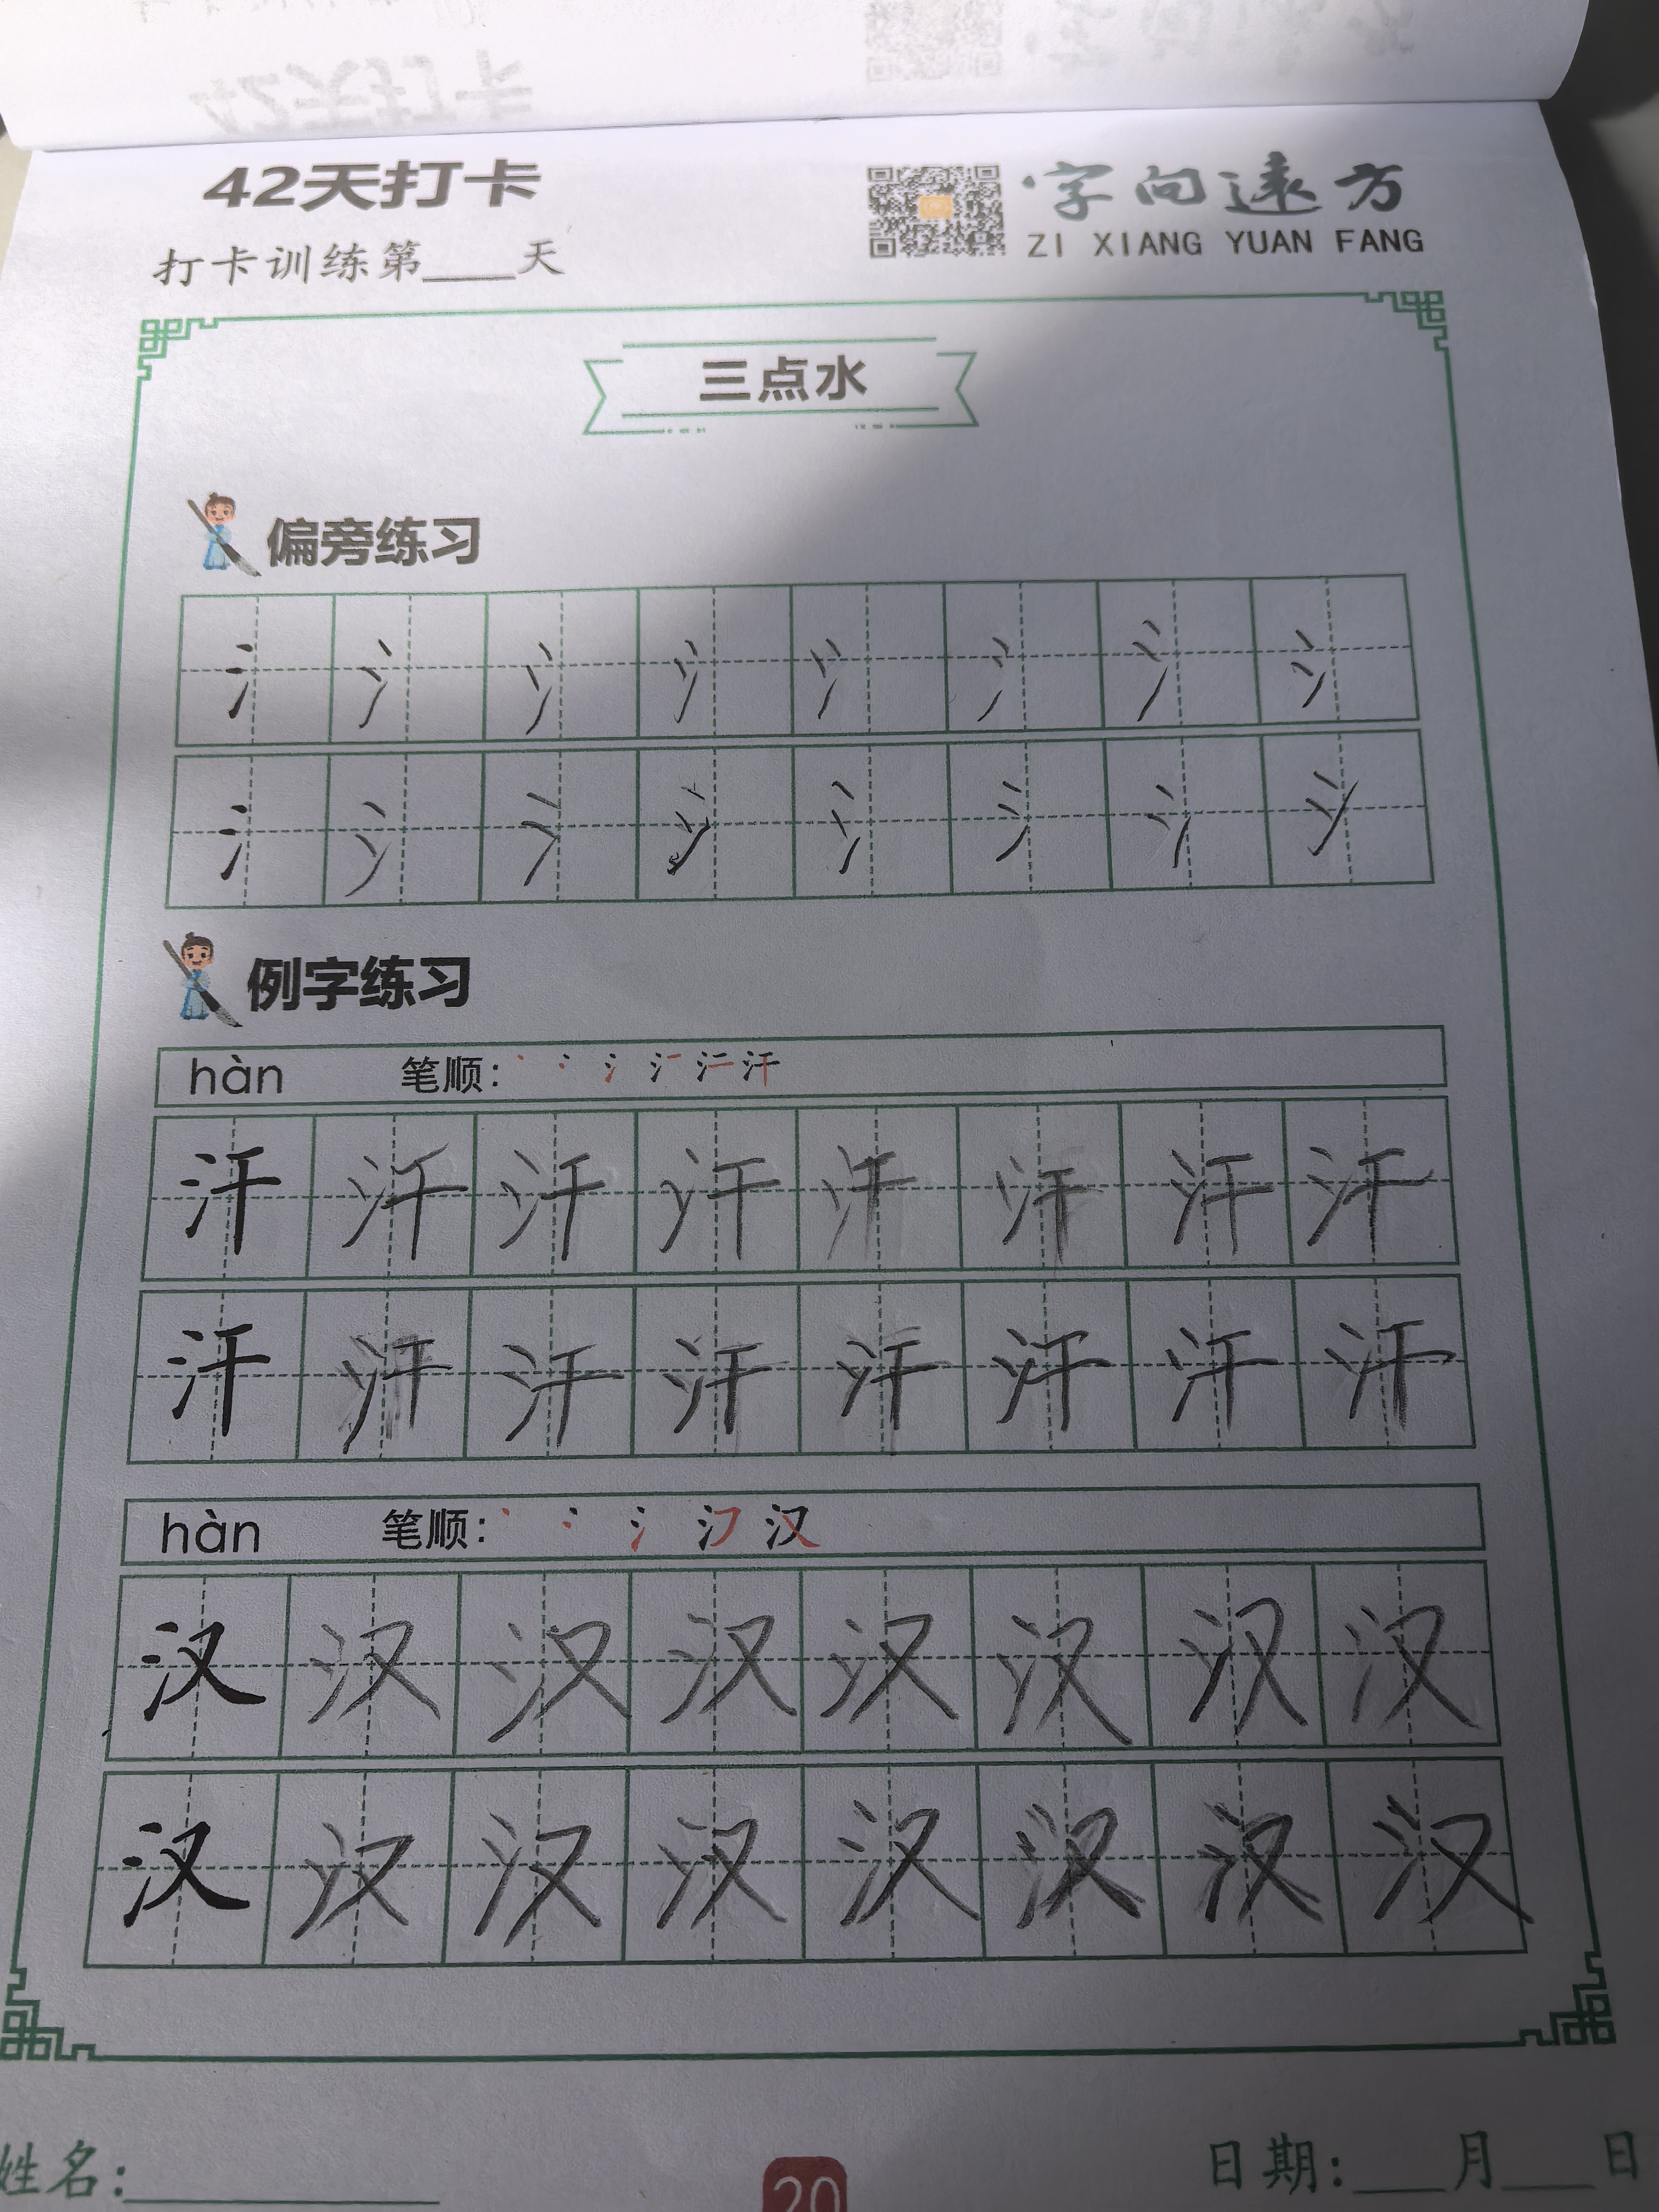 42天打卡
字向远方
ZI XIANG YUAN FANG
打卡训练第____天
三点水
偏旁练习
氵 氵 氵 氵 氵 氵 氵 氵
氵 氵 氵 氵 氵 氵 氵 氵
例字练习
hàn 笔顺:
汗 汗 汗 汗 汗 汗 汗 汗
汗 汗 汗 汗 汗 汗 汗 汗
hàn 笔顺: 汉
汉 汉 汉 汉 汉 汉 汉 汉
汉 汉 汉 汉 汉 汉 汉 汉
姓名:
20
日期:____月____日